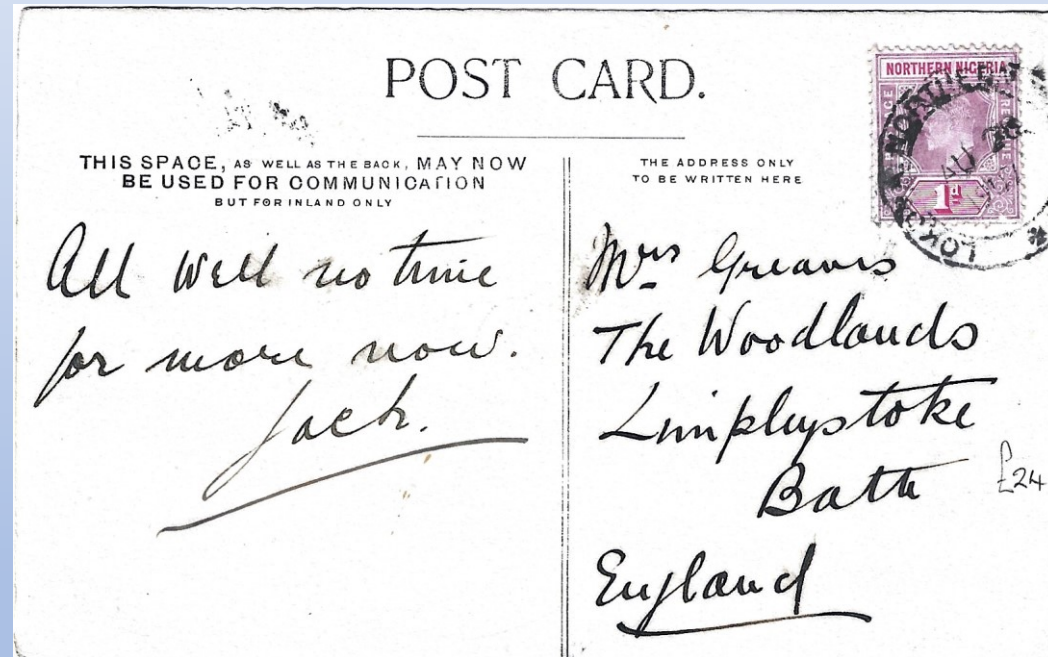 POST CARD.
THIS SPACE, AS WELL AS THE BACK, MAY NOW
BE USED FOR COMMUNICATION
BUT FOR INLAND ONLY
All well no time
for more now.
Jack.
THE ADDRESS ONLY
TO BE WRITTEN HERE
NORTHERN NIGERIA
1d
AU 28
Mrs Greaves
The Woodlands
Limpleystoke
Bath
England
£24